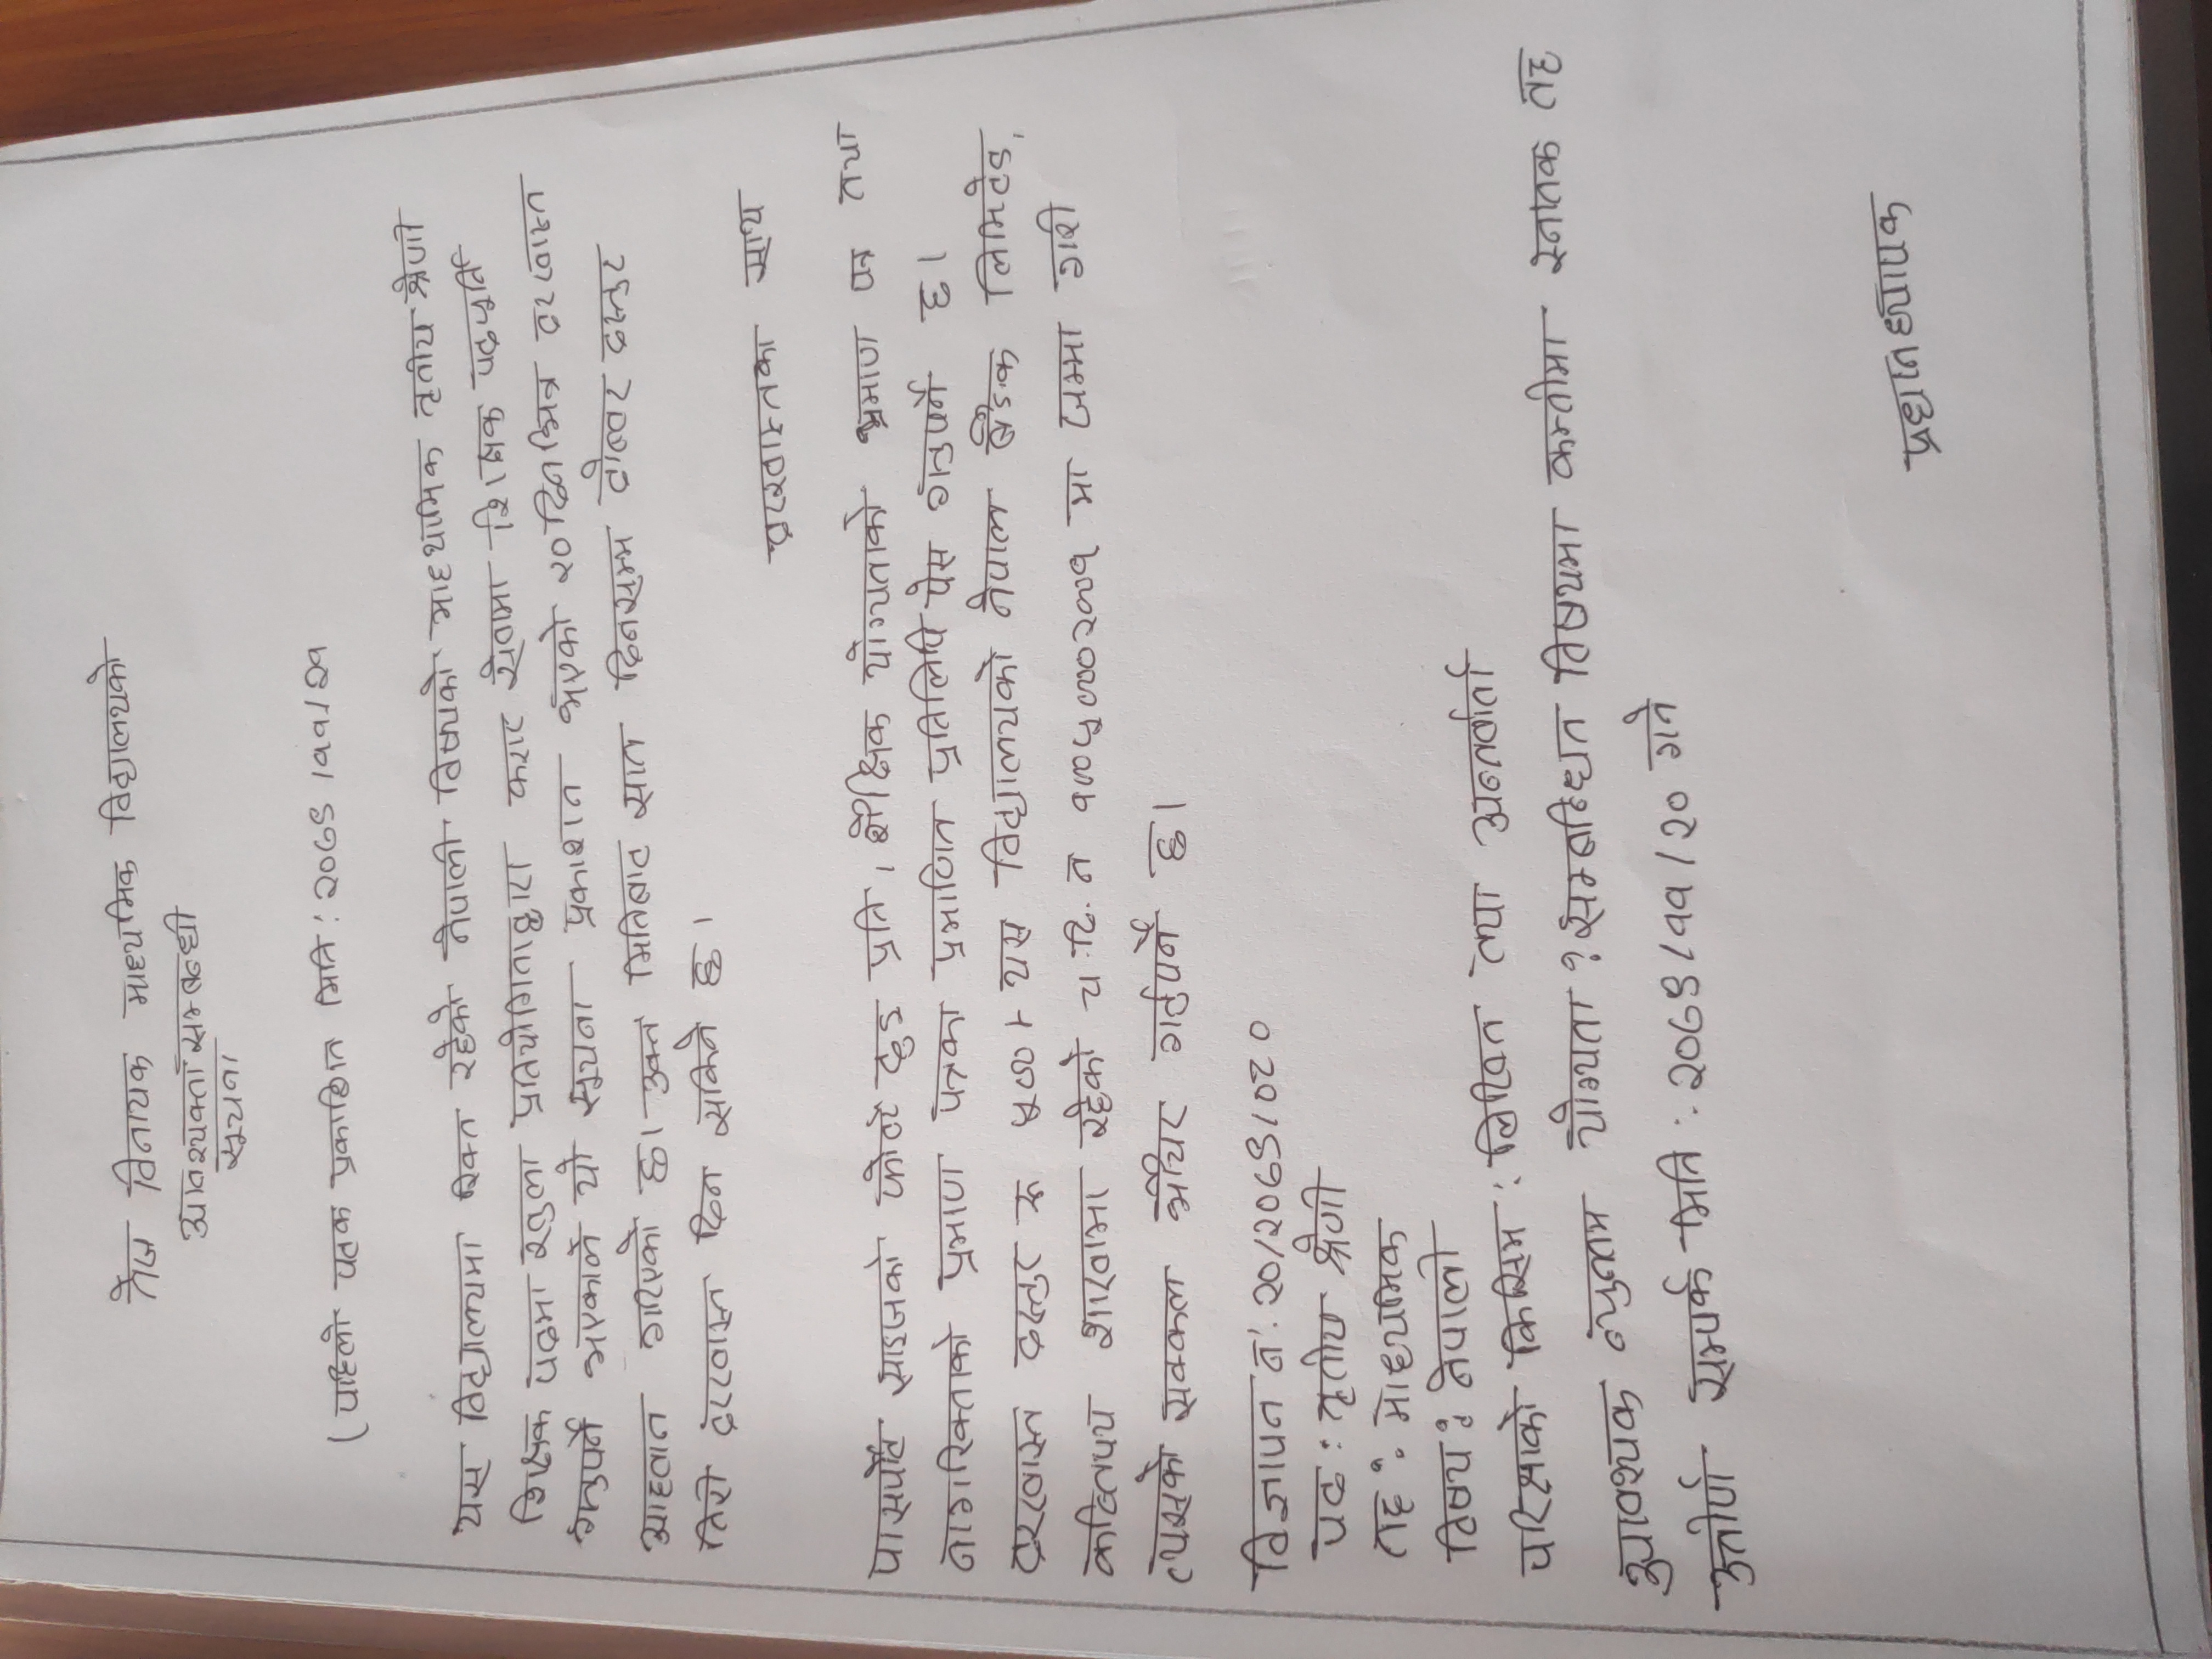 तेज विनायक माध्यमिक विद्यालयको
आवश्यक्ता सम्बन्धी
सूचना
(पहिलो पटक प्रकाशित मिति : २०७९ /११/२१
यस विद्यालयमा रिक्त रहेको नेपाली विषयको माध्यामिक तृतीय श्रेणी
शिक्षक पदमा खुला प्रतियोगिताद्वारा करार सेवामा शिक्षक पदपूर्ति
गनुपर्ने भएकाले यो सूचना प्रकाशन भएको २० दिनभित्र दरखास्त
आहवान गरिएको छ। उक्त मितिबाट सात दिनसम्म दोब्बर दस्तुर
तिरी दरखास्त दिन सकिने छ।
दरखास्तका साथ
पासपोर्ट साइजको फोटो दुइ प्रति, शैक्षिक योग्यताको प्रमाण पत्र तथा
नागरिक्ताको प्रमाण पत्रका प्रमाणित प्रतिलिपि पेस गनुपर्ने छ।
दरखास्त दस्तुर रू ५००।- यस विद्यालयको नेपाल बैङ्क लिमिटेड,
शाखामा रहेको च.हि. न मा जम्मा गरी
त्यसको सक्कल भौचर गर्नुपर्ने छ।
विज्ञापन नं. २०/२०७९/०८०
पद : तृतीय श्रेणी
तह : माध्यमिक
विषय : नेपाली
परिक्षाको किसिम : लिखित तथा अन्तर्वार्ता
आवश्यक न्युनतम योग्यता : सम्बन्धित विषयमा कम्तीमा स्नातक तह
उत्तीर्ण सम्पर्क मिति : २०७९/११/२० गते
प्रधानध्यापक